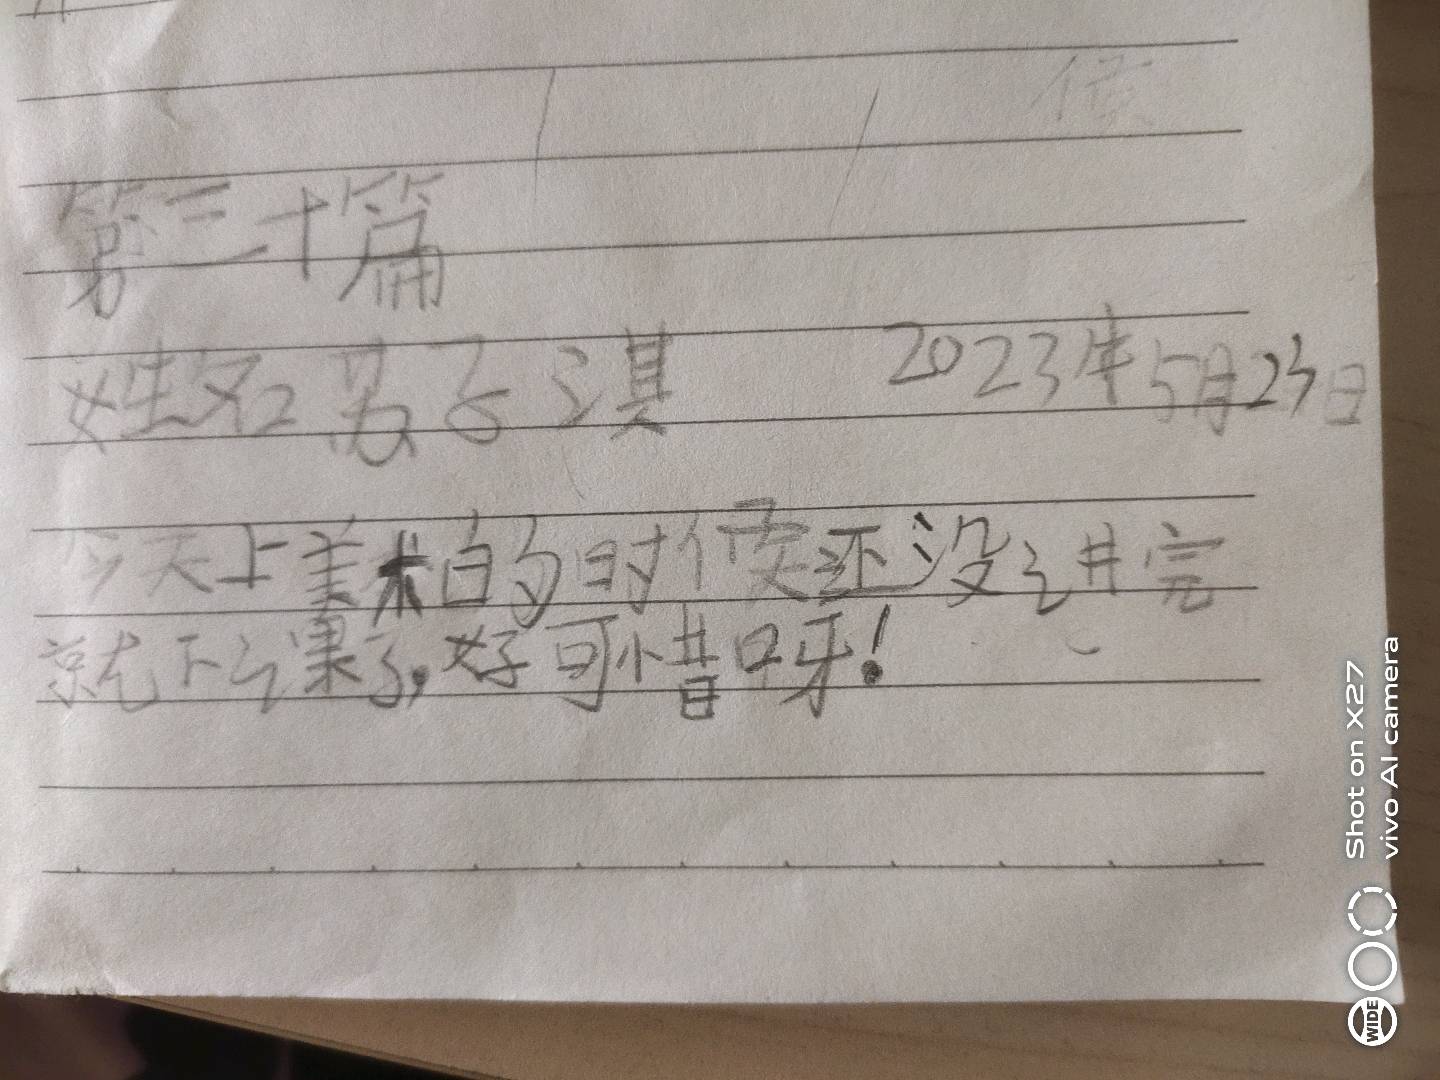 第三十篇
姓名 苏子淇 2023年5月23日
今天上美术的时候还没讲完
就下课了,好可惜呀!
Shot on X27
vivo AI camera
WIDE